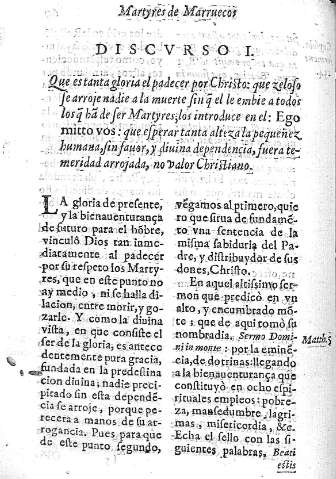 Martyres de Marruecos
DISCVRSO I.
Que es tanta gloria el padecer por Christo: que zeloso
se arroje nadie a la muerte sin q̃ el le embie a todos
los q̃ hã de ser Martyres, los introduce en el: Ego
mitto vos: que esperar tanta alteza la pequeñez
humana, sin fauor, y diuina dependencia, fuera te-
meridad arrojada, no valor Christiano.
LA gloria de presente,
y la bienauenturança
de futuro para el hõbre,
vinculò Dios tan inme-
diatamente al padecer
por su respeto los Marty-
res, que en este punto no
ay medio, ni se halla di-
lacion, entre morir, y go-
zarle. Y como la diuina
vista, en que consiste el
ser de la gloria, es antece
dentemente pura gracia,
fundada en la predestina
cion diuina; nadie preci-
pitado sin esta dependẽ-
cia se arroje, porque pe-
recerà a manos de su ar-
rogancia. Pues para que
de este punto segundo,
vẽgamos al primero, quie
ro que sirua de fundamẽ-
to vna sentencia de la
misma sabiduria del Pa-
dre, y distribuydor de sus
dones, Christo.
En aquel altissimo ser-
mon que predicò en vn
alto, y encumbrado mõ-
te: que de aqui tomò su
nombradia, Sermo Domi-
ni in monte: por la eminẽ-
cia, de dotrinas: llegando
a la bienauenturança que
constituyò en ocho espi-
rituales empleos: pobre-
za, mansedumbre, lagri-
mas, misericordia, &c.
Echa el sello con las si-
guientes palabras, Beati
estis
Matth. 5